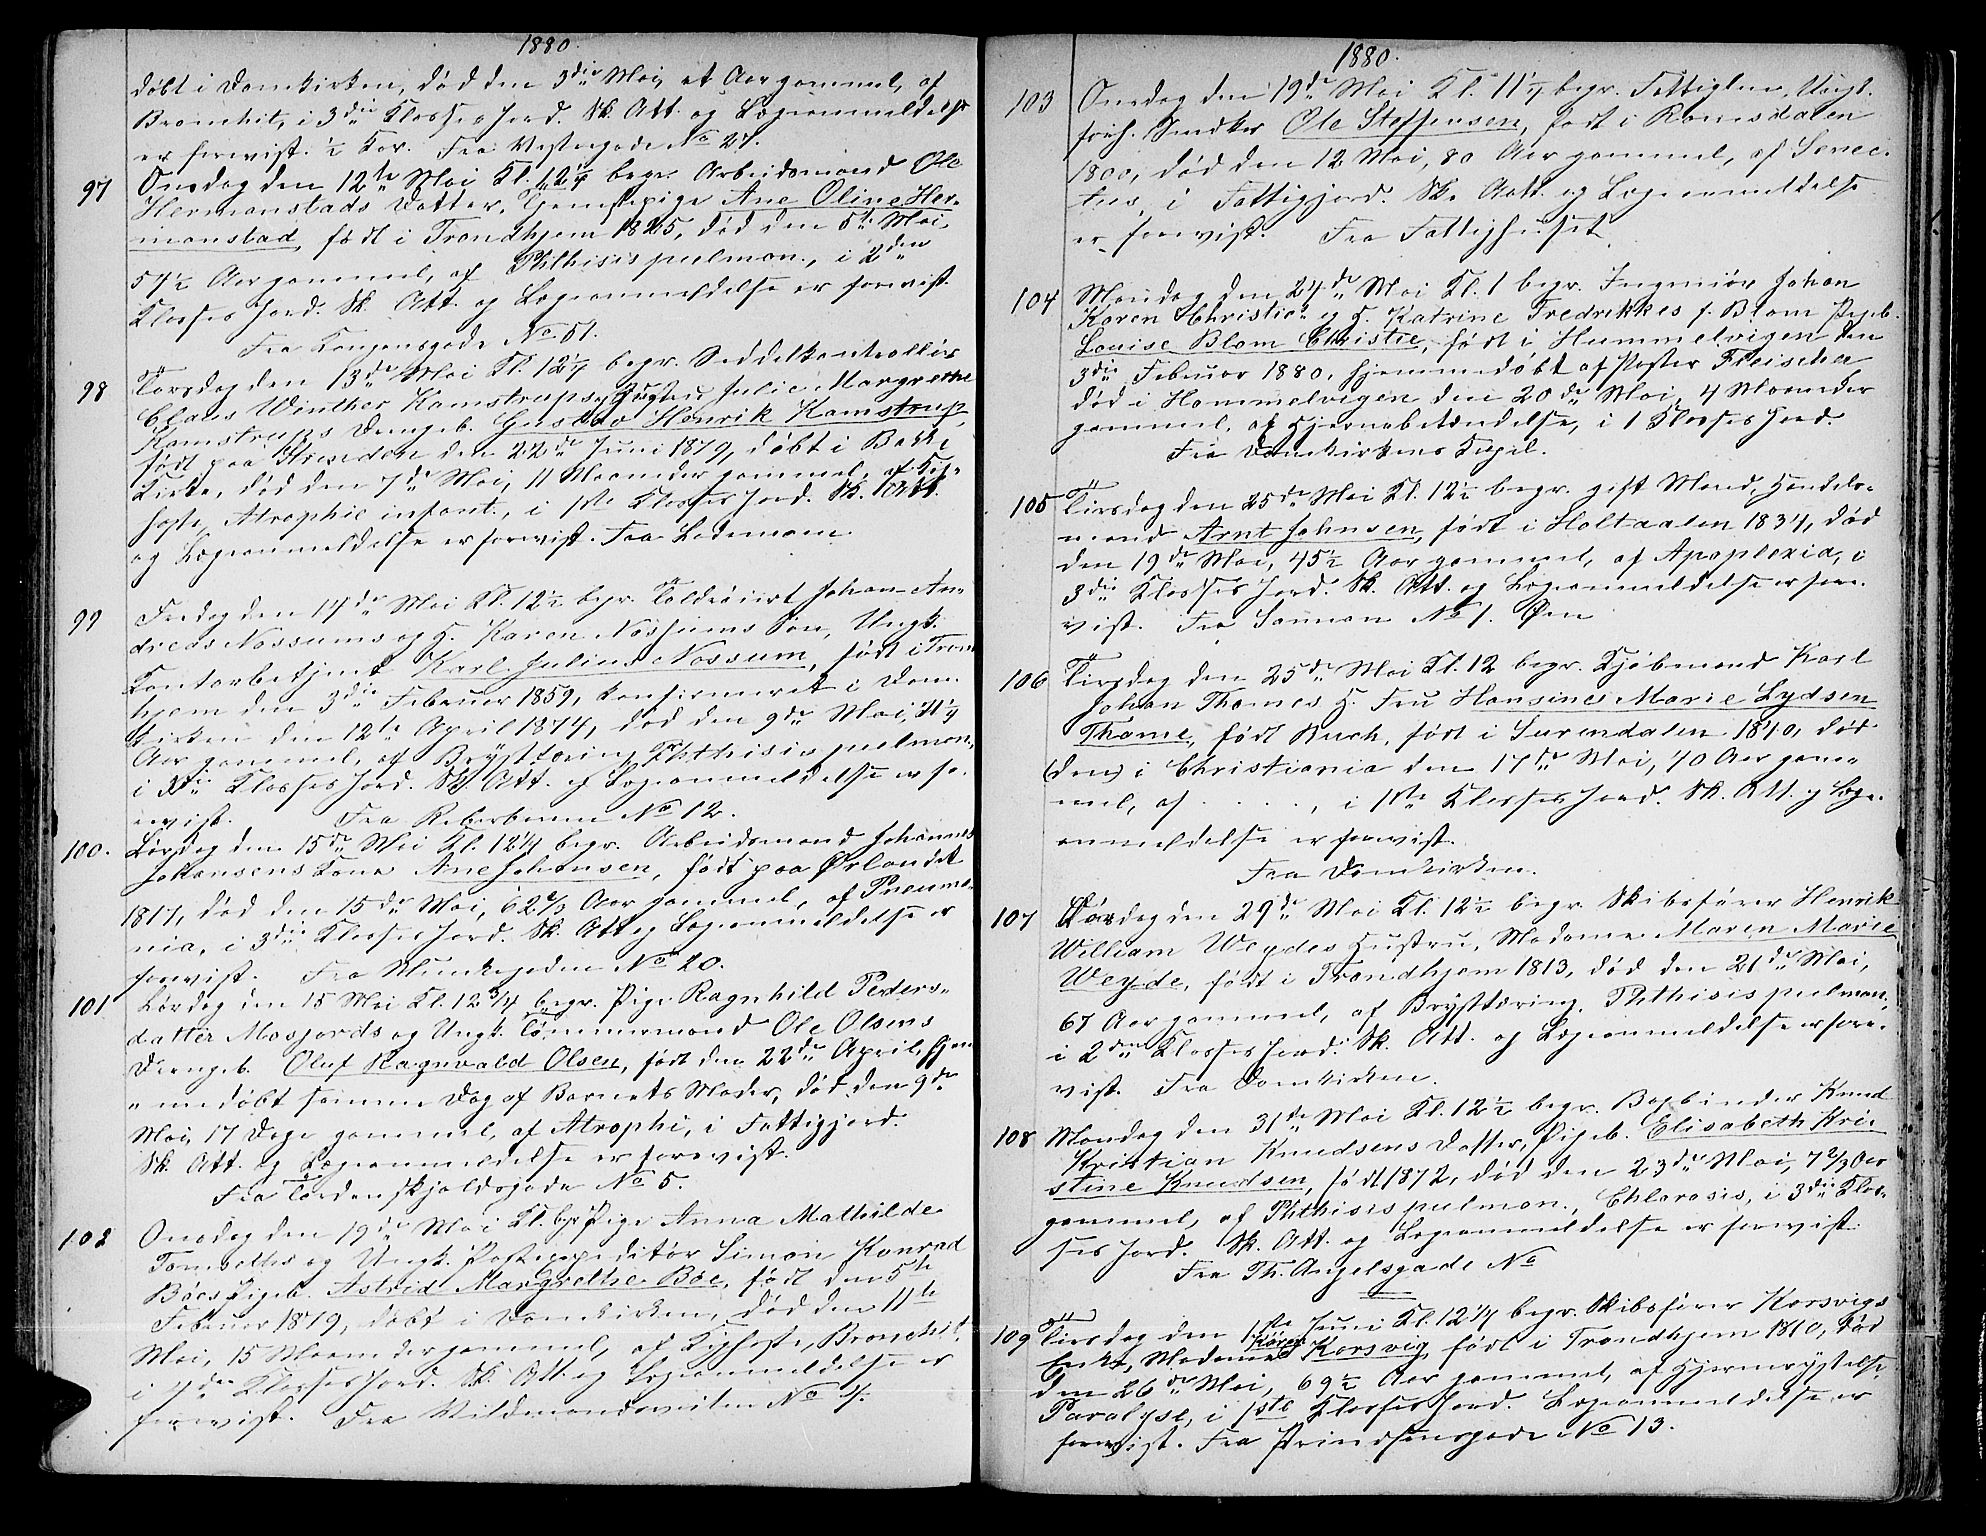 1880.
døbt i Domkirken, død den 3die Mai, et Aar gammel, af
Bronchit, i 3die Klasses Jord. Sk. Att. og Lægeanmeldelse
er forevist. ½ Kar. Fra Vestergade No 27.
97 Onsdag den 12te Mai Kl. 12¼ begr. Arbeidsmand Ole
Hermanstads Datter, Tjenestepige Ane Oline Her-
manstad, født i Trondhjem 1825, død den 5te Mai,
54½ Aar gammel, af Phthisis pulmon., i 2den
Klasses Jord. Sk. Att. og Lægeanmeldelse er forevist.
Fra Kongensgade No 51.
98 Torsdag den 13de Mai Kl. 12¼ begr. Seddelkontrollør
Claus Winther Kamstrups og Hustru Julie Margrethe
Kamstrups Drengeb. Gustav Henrik Kamstrup,
født paa Strinden den 22de Juni 1879, døbt i Bakke
Kirke, død den 7de Mai, 11 Maaneder gammel, af Kig-
hoste, Atrophie infant., i 1ste Klasses Jord. Sk. Att.
og Lægeanmeldelse er forevist. Fra Lademoen.
99 Fredag den 14de Mai Kl. 12½ begr. Toldrorert Johan An-
dreas Nossums og H. Karen Nossums Søn, Ungk.
Kontorbetjent Karl Julius Nossum, født i Trond
hjem den 3die Februar 1859, konfirmeret i Dom-
kirken den 12te April 1874, død den 9de Mai, 21¼
Aar gammel, af Brysttæring, Phthisis pulmon.,
i 3die Klasses Jord. Sk. Att. og Lægeanmeldelse er fo-
revist. Fra Reberbanen No 12.
100. Lørdag den 15de Mai Kl. 12¼ begr. Arbeidsmand Johannes
Johansens Kone Ane Johansen, født paa Ørlandet
1817, død den 15de Mai, 62⅔ Aar gammel, af Pneumo-
nia, i 3die Klasses Jord. Sk. Att. og Lægeanmeldelse er
forevist. Fra Munkegaden No 20.
101 Lørdag den 15 Mai Kl. 12¾ begr. Pige Ragnhild Peders-
datter Mosjords og Ungk. Tømmermand Ole Olsens
Drengeb. Oluf Ragnvald Olsen, født den 22de April, hjem
"medøbt samme Dag af Barnets Moder, død den 9de
Mai, 17 Dage gammel, af Atrophi, i Fattigjord.
Sk. Att. og Lægeanmeldelse er forevist.
Fra Tordenskjoldsgade No 5.
102 Onsdag den 19de Mai Kl. begr. Pige Anna Mathilde
og Ungk. Postexpeditør Simon Konrad
Böes Pigeb. Astrid Margrethe Böe, født den 5te
Februar 1879, døbt i Domkirken, død den 11te
Mai, 15 Maaneder gammel, af Kighoste, Bronchit,
i 2den Klasses Jord. Sk. Att. og Lægeanmeldelse er
forevist. Fra Vildmandsveiten No 4.
1880.
103 Onsdag den 19de Mai Kl. 11½ begr. Fattiglem, Ungk.
forh. Snedker Ole Steffensen, født i Romsdalen
1800, død den 12 Mai, 80 Aar gammel, af Senec-
tus, i Fattigjord. Sk. Att. og Lægeanmeldelse
er forevist. Fra Fattighuset.
104 Mandag den 24de Mai Kl. 1 begr. Ingeniør Johan
Koren Christie og H. Katrine Fredrikkes f. Blom Pigeb.
Louise Blom Christie, født i Hummelvigen den
3die Februar 1880, hjemmedøbt af Pastor Fleischer
død i Hommelvigen den 20de Mai, 4 Maaneder
gammel, af Hjernebetændelse, i 1 Klasses Jord.
Fra Domkirkens Kapel.
105 Tirsdag den 25de Mai Kl. 12½ begr. gift Mand, Handels-
mand Arnt Johnsen, født i Holtaalen 1834, død
den 19de Mai, 45½ Aar gammel, af Apoplexia, i
3die Klasses Jord. Sk. Att. og Lægeanmeldelse er fore-
vist. Fra Sannan No 1. Øen
106 Tirsdag den 25de Mai Kl. 12 begr. Kjøbmand Karl
Johan Thames H. Fru Hansine Marie Lydsen
Thame, født Buch, født i Surendalen 1840, død
(den) i Christiania den 17de Mai, 40 Aar gam-
mel, af . . . . , i 1ste Klasses Jord. Sk. Att. og Læge-
anmeldelse er forevist.
Fra Domkirken.
107 Lørdag den 29de Mai Kl. 12½ begr. Skibsfører Henrik
William Weydes Hustru, Madame Maren Marie
Weyde, født i Trondhjem 1813, død den 21de Mai,
67 Aar gammel, af Brysttæring, Phthisis pulmon.,
i 2den Klasses Jord. Sk. Att. og Lægeanmeldelse er fore-
vist. Fra Domkirken.
108 Mandag den 31te Mai Kl. 12½ begr. Bogbinder Knud
Kristian Knudsens Datter, Pigeb. Elisabeth Kri-
stine Knudsen, født 1872, død den 23de Mai, 7⅔ Aar
gammel, af Phthisis pulmon., Chlorosis, i 3die Klas-
ses Jord. Sk. Att. og Lægeanmeldelse er forevist.
Fra Th. Angelsgade No
109 Tirsdag den 1ste Juni Kl. 12¼ begr. Skibsfører Korsvigs
Enke, Madame Korsvig, født i Trondhjem 1810, død
den 26de Mai, 69½ Aar gammel, af Hjernerystelse,
Paralyse, i 1ste Klasses Jord. Lægeanmeldelse er
forevist. Fra Prindsensgade No 13.